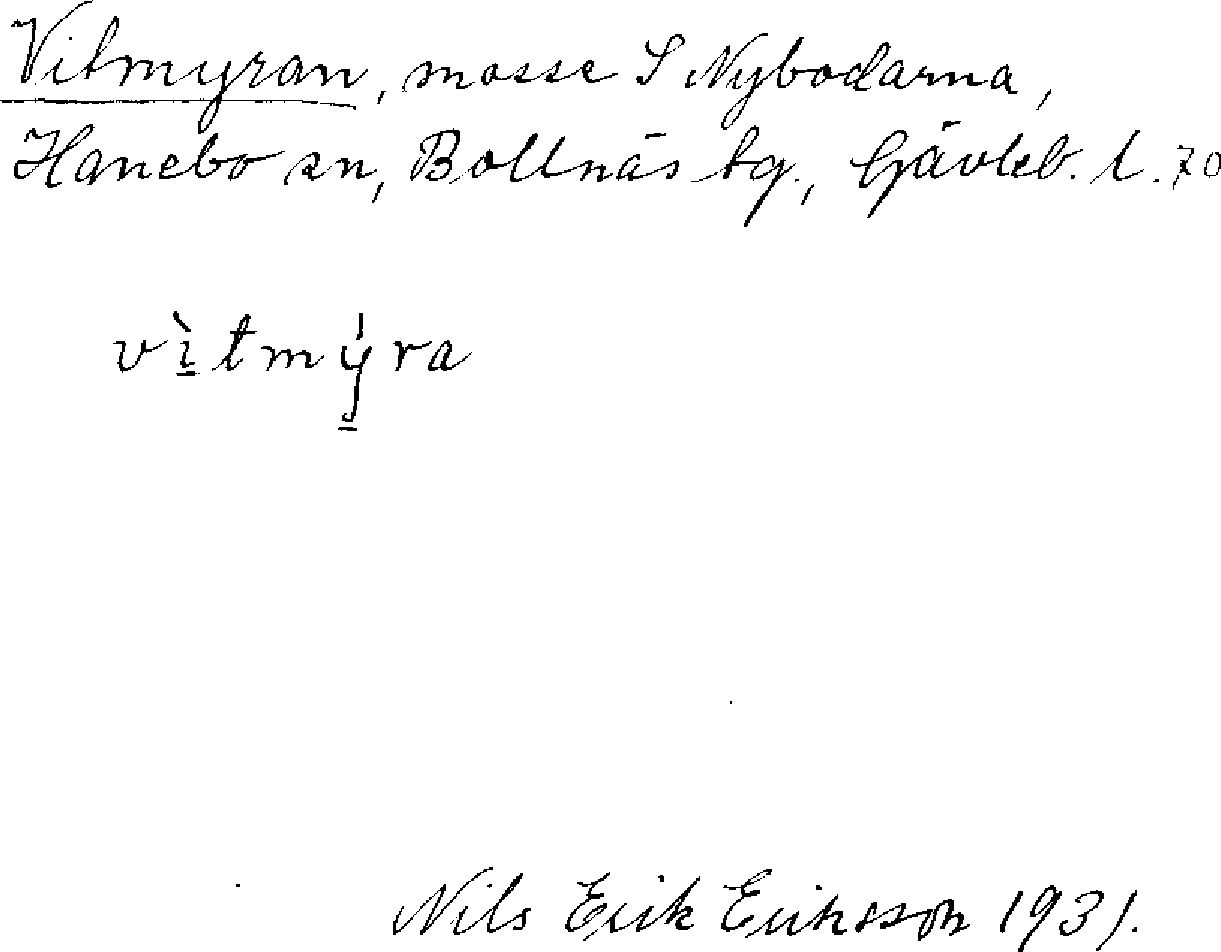 Vitmyran, mosse S Nybodarna,
Hanebo sn, Bollnäs tg., Gävleb. l. 70
vì̲tmý̲ra
Nils Erik Eriksson 1931.